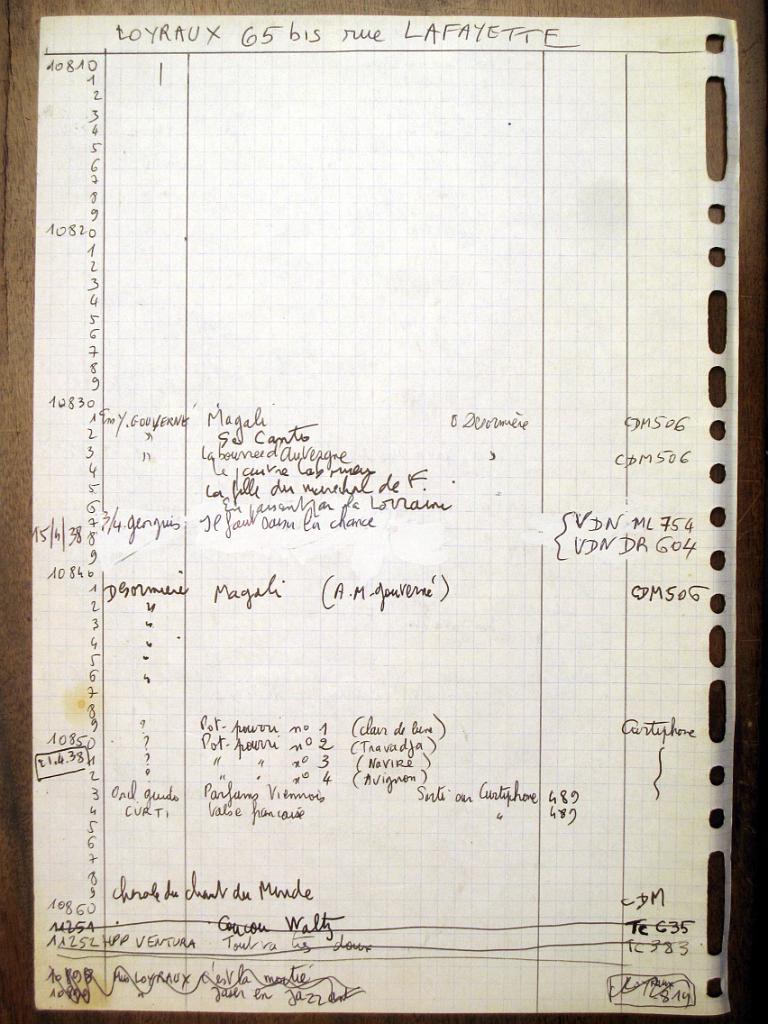 LOYRAUX 65 bis rue LAFAYETTE
10810
1
2
3
4
5
6
7
8
9
10820
1
2
3
4
5
6
7
8
9
10830
1 Y. GOUVERNÉ Magali Desormière CDM506
2 " Se Canto
3 " La bourrée d'Auvergne " CDM506
4 Le pauvre laboureur
5 La fille du maréchal de F.
6 En passant par la Lorraine
7 georgius Il faut la chance VDN ML 754
15/4/38 8 VDN DR 604
9
10840
1 Desormière Magali (A.M. gouverné) CDM506
2 "
3 "
4 "
5 "
6 "
7
8
9 ? Pot-pourri nº 1 (clair de lune) Curtiphone
10850 ? Pot-pourri nº 2 (Travadja)
21.4.38 1 ? " " nº 3 (Navire)
2 ? " " nº 4 (Avignon)
3 Orch guido Parfums Viennois Sorti sur Curtiphone 489
4 CURTI Valse française " 489
5
6
7
8
9 chorale du chant du Monde
10860 CDM
11251 Coucou Waltz Tc 635
11252 VENTURA Tout va très doux Tc 383
LOYRAUX c'est la moitié
" Jaser en jazzant
Loyraux 2819